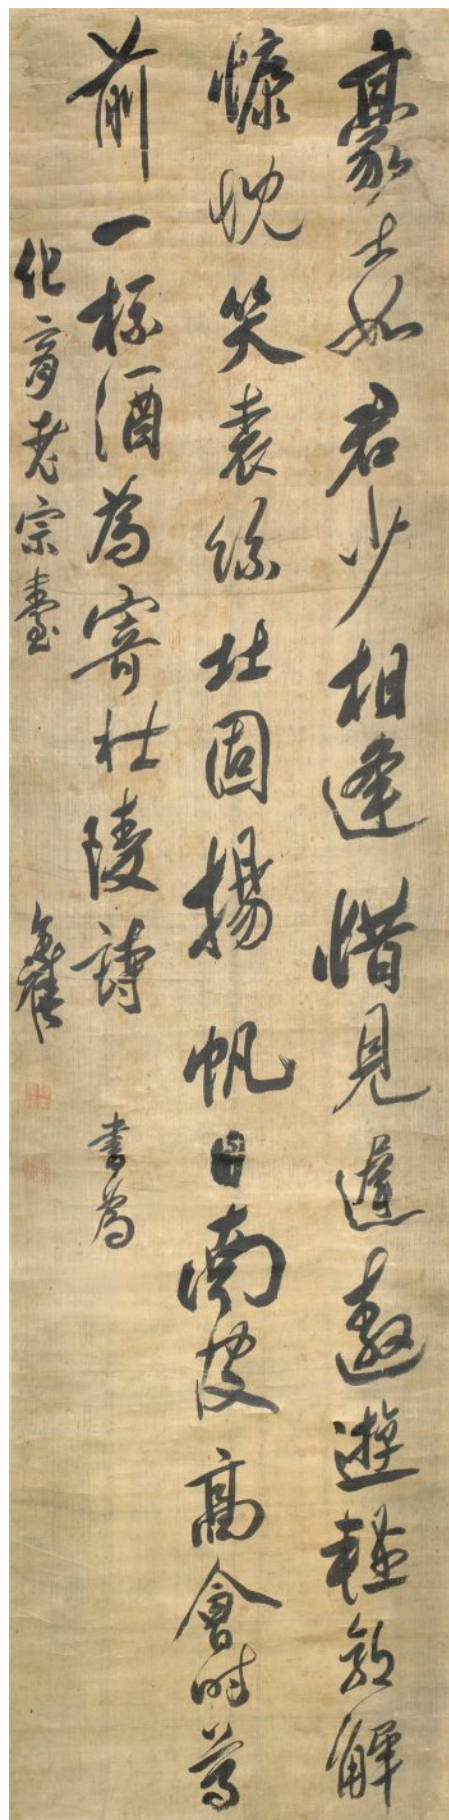 豪士如君少相逢惜見遲遨遊輕郭解
慷慨笑袁絲北固揚帆日南皮高會時尊
前一杯酒為寄杜陵詩 書為
化育老宗臺